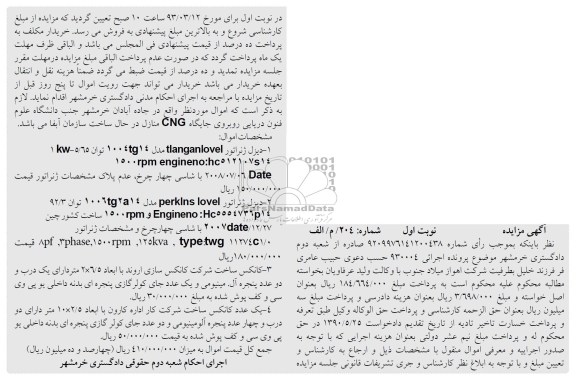 آگهی مزایده نوبت اول شماره: ۲۰۴/ م/ الف
نظر باینکه بموجب رأی شماره ۹۲۰۹۹۷۶۱۴۱۲۰۰۴۳۸ صادره از شعبه دوم
دادگستری خرمشهر موضوع پرونده اجرائی ۹۳۰۰۰۴ حسب دعوی حبیب عامری
فر فرزند خلیل بطرفیت شرکت اهواز میلاد جنوب با وکالت ولید عرفاویان بخواسته
مطالبه محکوم علیه محکوم است به پرداخت مبلغ ۱۸۴/۶۶۴/۰۰۰ ریال بعنوان
اصل خواسته و مبلغ ۳/۶۹۸/۰۰۰ ریال بعنوان هزینه دادرسی و پرداخت مبلغ سه
میلیون ریال بعنوان حق الزحمه کارشناسی و پرداخت حق الوکاله وکیل طبق تعرفه
و پرداخت خسارت تاخیر تادیه از تاریخ تقدیم دادخواست ۱۳۹۰/۵/۲۵ در حق
محکوم له و پرداخت مبلغ نیم عشر دولتی بعنوان هزینه اجرایی که با توجه به
صدور اجراییه و معرفی اموال منقول با مشخصات ذیل و ارجاع به کارشناس و
تعیین مبلغ و با توجه به ابلاغ نظر کارشناس و جری تشریفات قانونی جلسه مزایده
در نوبت اول برای مورخ ۹۳/۰۳/۱۲ ساعت ۱۰ صبح تعیین گردید که مزایده از مبلغ
کارشناسی شروع و به بالاترین مبلغ پیشنهادی به فروش می رسد. خریدار مکلف به
پرداخت ده درصد از قیمت پیشنهادی فی المجلس می باشد و الباقی ظرف مهلت
یک ماه پرداخت گردد که در صورت عدم پرداخت الباقی مبلغ مزایده درمهلت مقرر
جلسه مزایده تمدید و ده درصد از قیمت ضبط می گردد ضمناً هزینه نقل و انتقال
بعهده خریدار می باشد خریدار می تواند جهت رویت اموال تا پنج روز قبل از
تاریخ مزایده با مراجعه به اجرای احکام مدنی دادگستری خرمشهر اقدام نماید. لازم
به ذکر است که اموال موردنظر واقع در جاده آبادان خرمشهر جنب دانشگاه علوم
فنون دریایی روبروی جایگاه CNG منازل در حال ساخت سازمان آبفا می باشد.
مشخصات اموال:
۱-دیزل ژنراتور tlanganlovel مدل ۱۰۰۴tg۱۴ توان ۵/۶۵-kw ۱
۱۵۰۰rpm engineno:hc۵۱۲۱۰۷s۱۴
Date ۲۰۰۸/۰۷/۰۶ با شاسی چهار چرخ، عدم پلاک مشخصات ژنراتور قیمت
۱۵۰/۰۰۰/۰۰۰ ریال
۲-دیزل ژنراتور perkins lovel مدل ۱۰۰۶tg۲a۱۴ توان ۹۲/۳
Engineno: Hc۵۵۵۴۷۳۶p۱۴ و ۱۵۰۰rpm ساخت کشور چین
۲۰۰۷date ۱۲/۲۷ با شاسی چهارچرخ و مشخصات ژنراتور
۸pf ,۳phase,۱۵۰۰rpm ,۱۲۵kva , type:twg ۱۱۲۷۴C۱/۰ قیمت
۱۸۰/۰۰۰/۰۰۰ریال
۳-کانکس ساخت شرکت کانکس سازی اروند با ابعاد ۲×۶/۵ متردارای یک درب و
دو عدد پنجره آل. مینومی و یک عدد جای کولرگازی پنجره ای بدنه داخلی یو پی وی
سی و کف پوش شده به مبلغ ۳۰/۰۰۰/۰۰۰ ریال.
۴-یک عدد کانکس ساخت شرکت کار اداره کارون با ابعاد ۲/۵×۱۰ متر دارای دو
درب و چهار عدد پنجره آلومینیومی و دو عدد جای کولر گازی پنجره ای بدنه داخلی یو
پی وی سی و کف پوش شده به قیمت ۵۰/۰۰۰/۰۰۰ ریال.
جمع کل قیمت اموال به میزان ۴۱۰/۰۰۰/۰۰۰ ریال (چهارصد و ده میلیون ریال)
اجرای احکام شعبه دوم حقوقی دادگستری خرمشهر
ParsNamadData